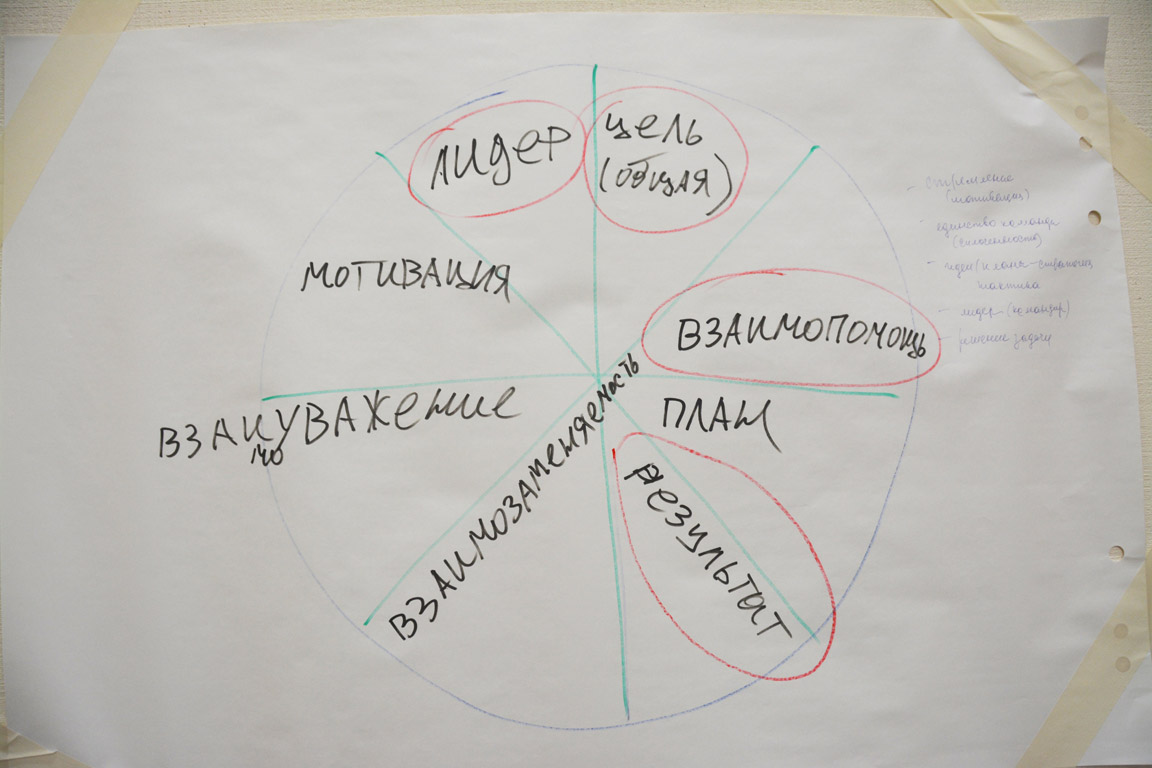 ЛИДЕР
ЦЕЛЬ
(ОБЩАЯ)
МОТИВАЦИЯ
ВЗАИМОПОМОЩЬ
ВЗАИУВАЖЕНИЕ
МО
ПЛАН
ВЗАИМОЗАМЕНЯЕМОСТЬ
РЕЗУЛЬТАТ
- стремление
(мотивация)
- единство команды
(сплоченность)
- идеи/планы-стратегии
тактика
- лидер (командир)
- решение задачи